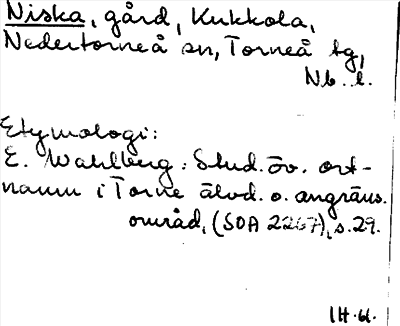 Niska, gård, Kukkola,
Nedertorneå sn, Torneå tg,
Nb. l.
Etymologi:
E. Wahlberg: Stud. öv. ort-
namn i Torne älvd. o. angräns.
område, (SOA 2267), s. 29.